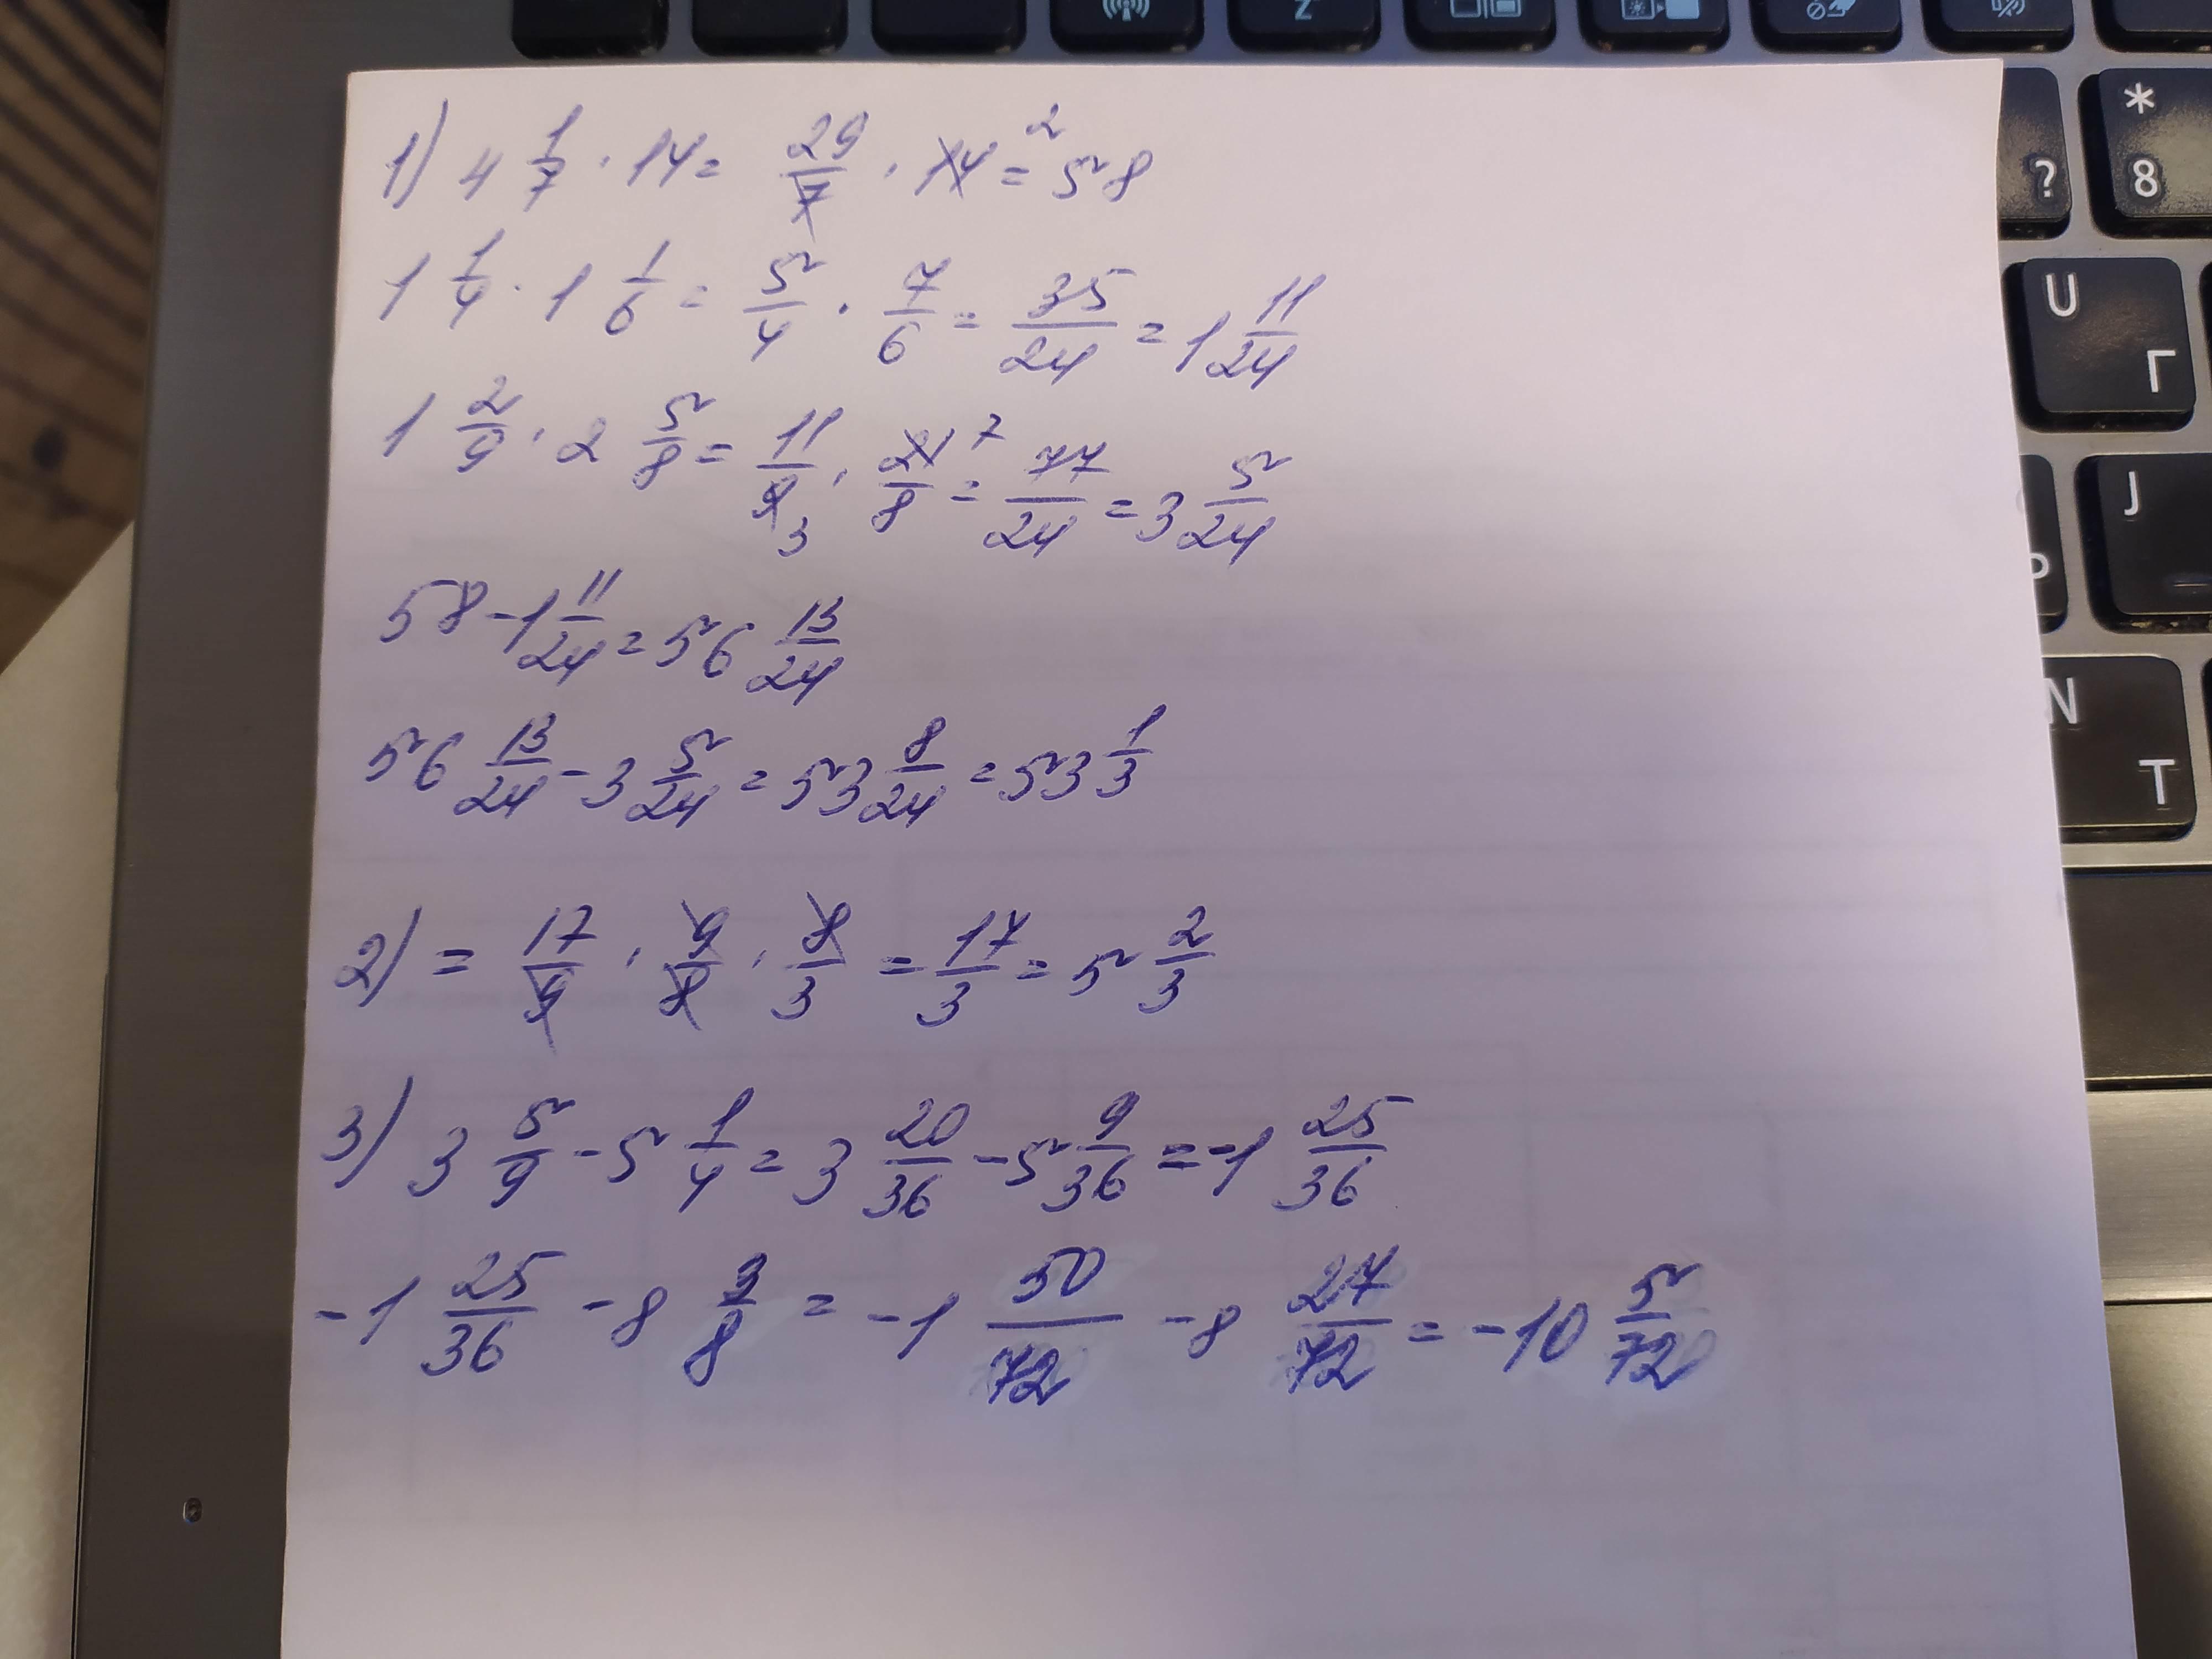 Z
*
? 8
1) 4 1/7 · 14 = 29/7 · 14 2 = 58
1 1/4 · 1 1/6 = 5/4 · 7/6 = 35/24 = 1 11/24
U
Г
1 2/9 · 2 5/8 = 11/9 3 · 21 7/8 = 77/24 = 3 5/24
J
58 - 1 11/24 = 56 13/24
56 13/24 - 3 5/24 = 53 8/24 = 53 1/3
N
Т
2) = 17/9 · 9/8 · 8/3 = 17/3 = 5 2/3
3) 3 5/9 - 5 1/4 = 3 20/36 - 5 9/36 = -1 25/36
-1 25/36 - 8 3/8 = -1 50/72 - 8 27/72 = -10 5/72